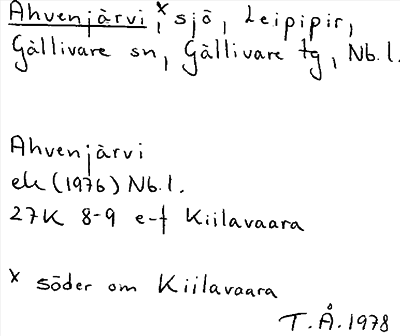 Ahvenjärvi,ˣ sjö, Leipipir,
Gällivare sn, Gällivare tg, Nb.l.
Ahvenjärvi
ek (1976) Nb.l.
27K 8-9 e-f Kiilavaara
x söder om Kiilavaara
T.Å.1978